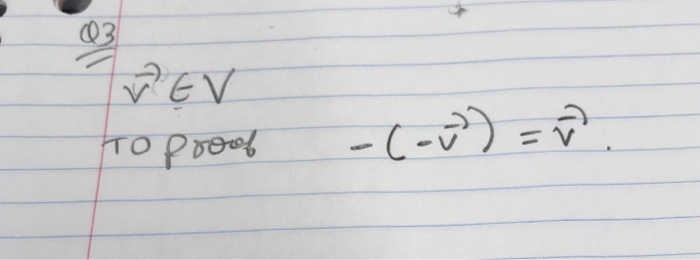 Q3
v⃗ ∈ V
TO proof -(-v⃗) = v⃗.